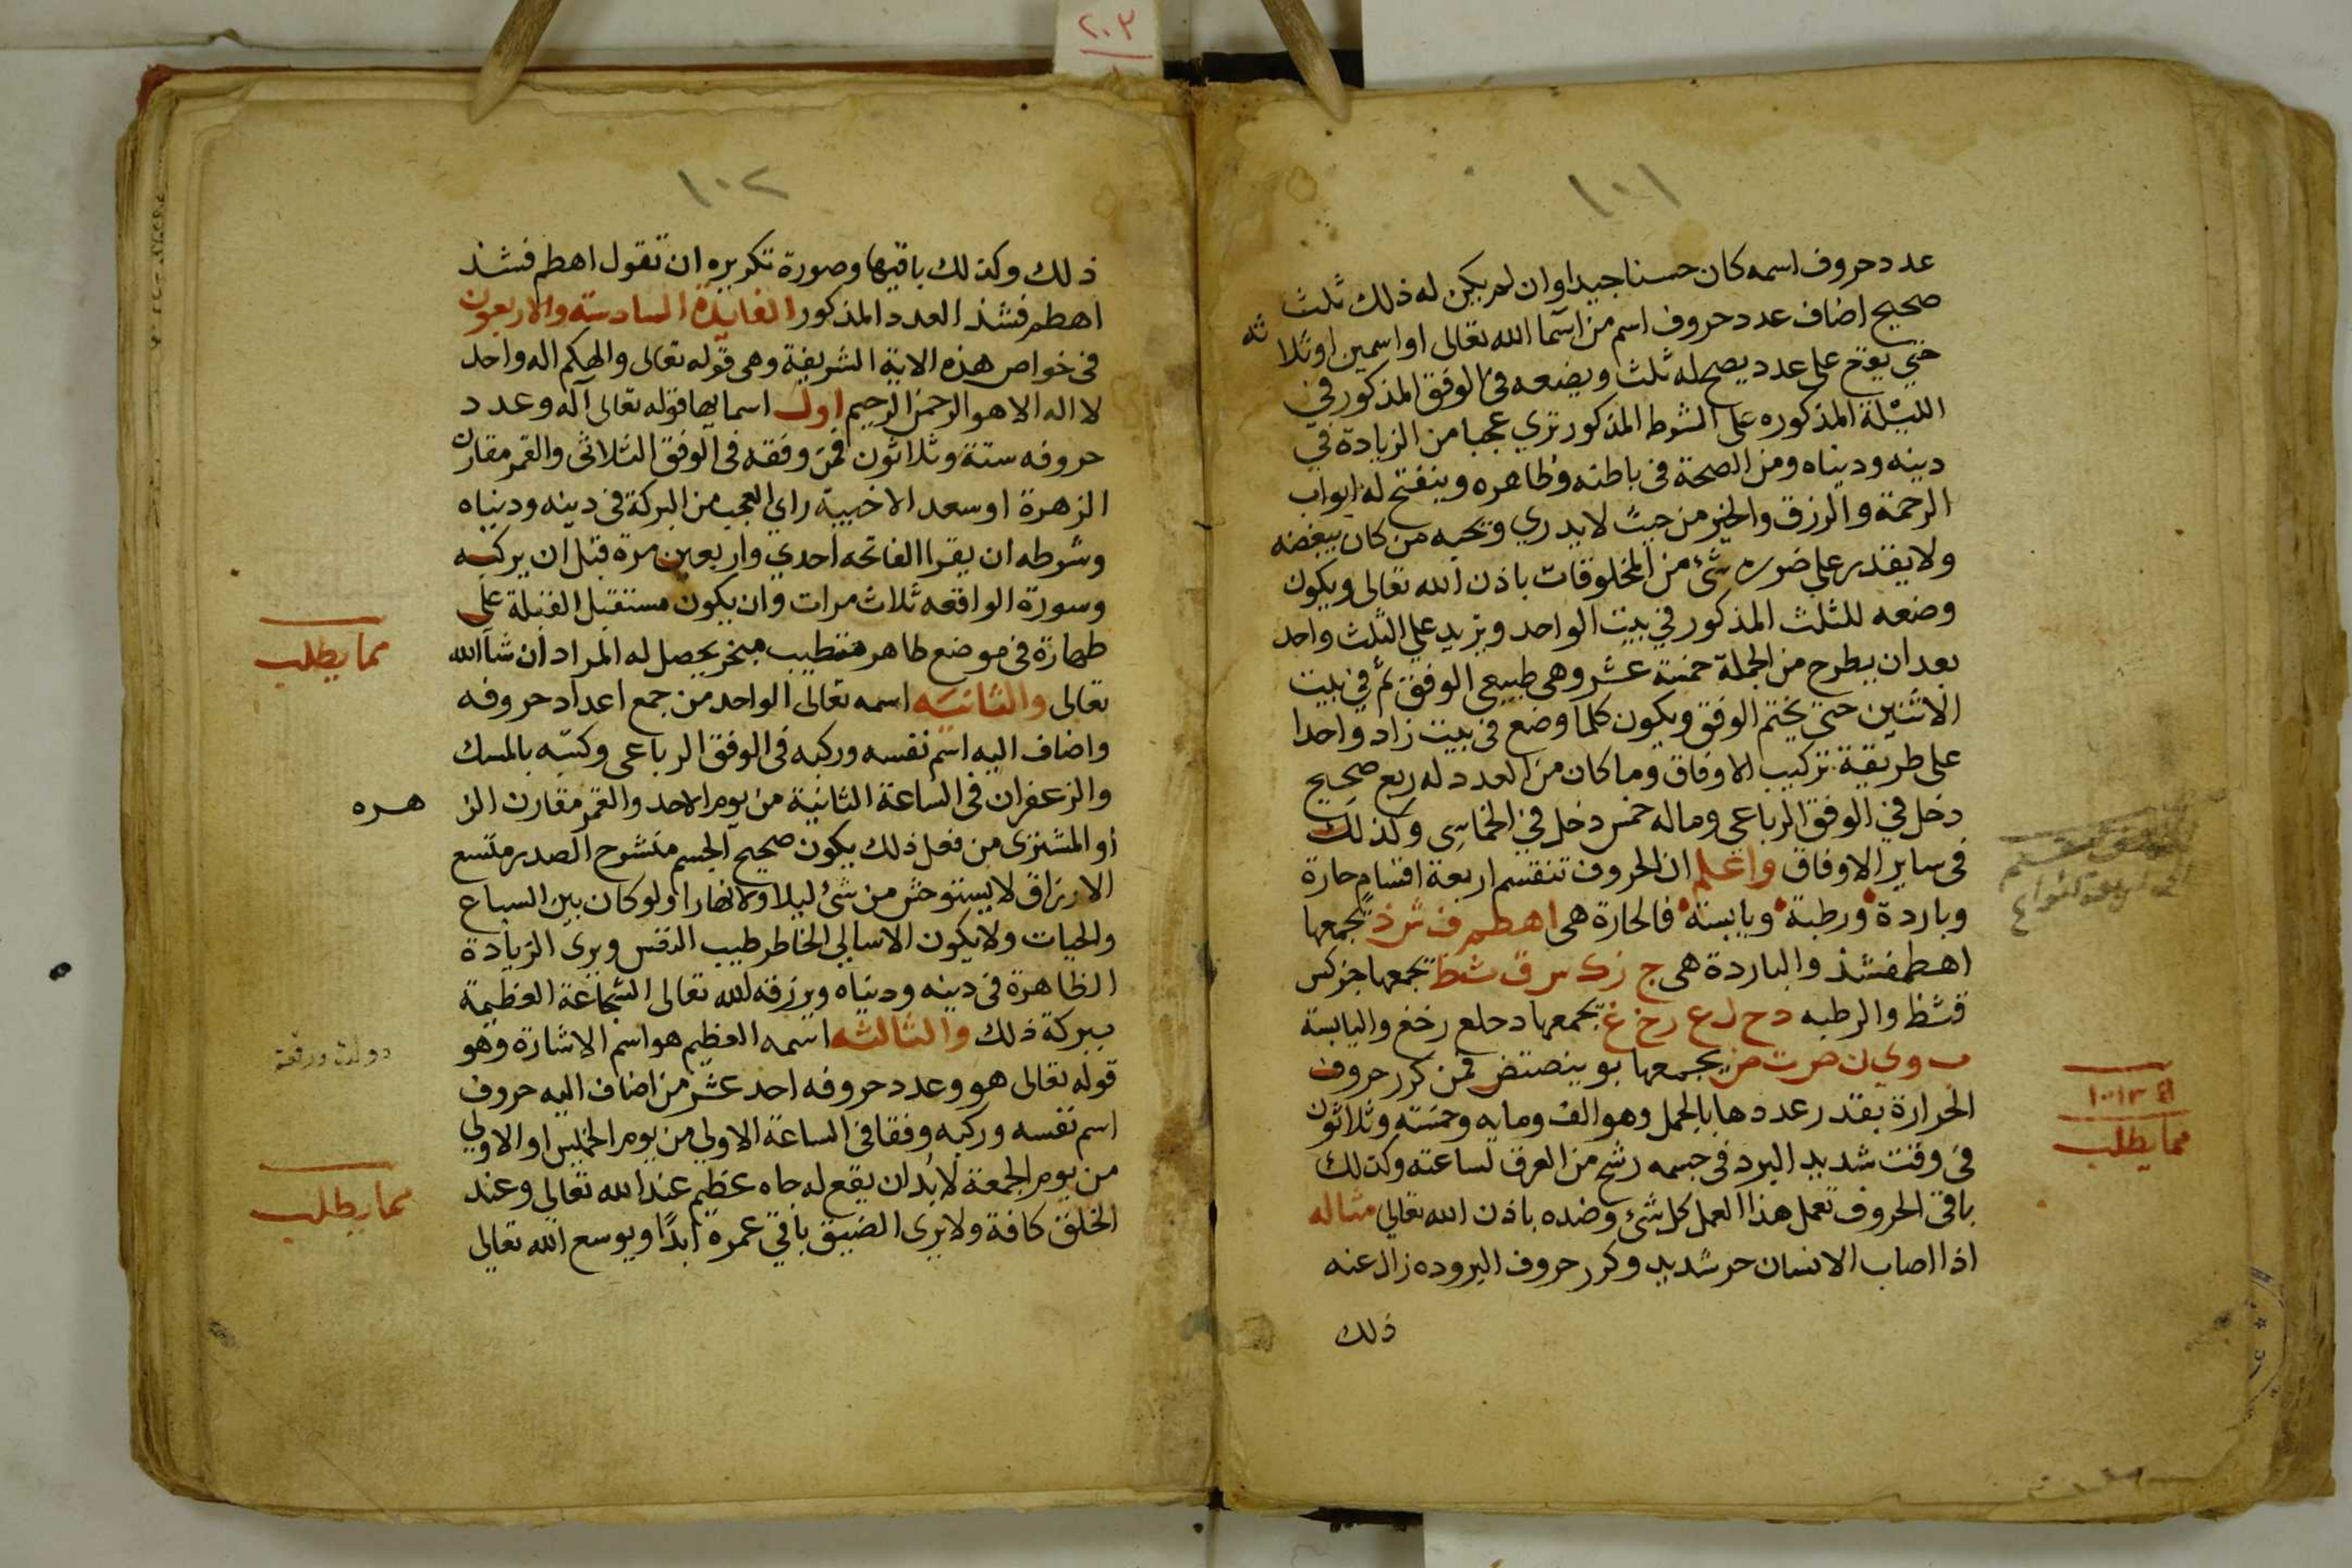 ٢٠٣
١٠١
عدد حروف اسمه كان حسنا جيدا وان لم يكن له ذلك ثلث
صحيح اضاف عدد حروف اسم من اسما الله تعالى او اسمين او ثلا ثه
حتي يقع على عدد يصح له ثلث ويضعه في الوفق المذكور في
الليلة المذكوره على الشرط المذكور تري عجبا من الزيادة في
دينه ودنياه ومن الصحة فى باطنه وظاهره وينفتح له ابواب
الرحمة والرزق والخير من حيث لا يدري ويحبه من كان يبغضه
ولا يقدر علي ضره شئ من المخلوقات باذن الله تعالى ويكون
وضعه للثلث المذكور في بيت الواحد ويزيد علي الثلث واحد
بعد ان يطرح من الجملة خمسة عشر وهى طبيعى الوفق ثم في بيت
الاثنين حتي يختم الوفق ويكون كلما وضع فى بيت زاد واحدا
على طريقة تركيب الاوفاق وما كان من العدد له ربع صحيح
دخل في الوفق الرباعي وماله خمس دخل في الخماسي وكذلك
فى ساير الاوفاق واعلم ان الحروف تنقسم اربعة اقسام حارة
وباردة ورطبة ويابسة فالحارة هى اهطم ف ش ذ تجمعها
اهطمفشذ والباردة هى ج ز ك س ق ث ظ تجمعها جزكس
قثظ والرطبه د ح ل ع ر خ غ تجمعها دحلع رخغ واليابسة
ب و ي ن ص ت ض يجمعها بوينصتض فمن كرر حروف
الحرارة بقدر عددها بالجمل وهو الف ومايه وخمسه وثلاثون
فى وقت شديد البرد فى جسمه رشح من العرق لساعته وكذلك
باقى الحروف تعمل هذا العمل كل شئ وضده باذن الله تعالي مثاله
اذا اصاب الانسان حر شديد وكرر حروف البروده زال عنه
ذلك
مما يطلب
١٠٢
ذلك وكذلك باقيها وصورة تكريره ان تقول اهطم فشذ
اهطم فشذ العدد المذكور الفايدة السادسة والاربعون
فى خواص هذه الاية الشريفة وهى قوله تعالى والهكم اله واحد
لا اله الا هو الرحمن الرحيم اول اسمايها قوله تعالى اله وعدد
حروفه ستة وثلاثون فمن وفقه فى الوفق الثلاثى والقمر مقارن
الزهرة او سعد الاخبية راي العجب من البركة فى دينه ودنياه
وشرطه ان يقرا الفاتحه احدي واربعين مرة قبل ان يركبه
وسورة الواقعه ثلاث مرات وان يكون مستقبل القبلة على
طهارة فى موضع طاهر متطيب مبخر يحصل له المراد ان شا الله
تعالى والثانيه اسمه تعالى الواحد من جمع اعداد حروفه
واضاف اليه اسم نفسه وركبه فى الوفق الرباعى وكتبه بالمسك
والزعفران فى الساعة الثانية من يوم الاحد والقمر مقارن الز هره
او المشترى من فعل ذلك يكون صحيح الجسم منشرح الصدر متسع
الارزاق لا يستوحش من شئ ليلا ولا نهارا ولو كان بين السباع
والحيات ولا يكون الا سالي الخاطر طيب النفس ويرى الزيادة
الظاهرة فى دينه ودنياه ويرزقه الله تعالى الشجاعة العظيمة
ببركة ذلك والثالثه اسمه العظيم هو اسم الاشارة وهو
قوله تعالى هو وعدد حروفه احد عشر من اضاف اليه حروف
اسم نفسه وركبه وفقا فى الساعة الاولي من يوم الخميس او الاولي
من يوم الجمعة لابد ان يقع له جاه عظيم عند الله تعالي وعند
الخلق كافة ولا يرى الضيق باقي عمره ابدًا ويوسع الله تعالي
مما يطلب
دولت ورفعة
مما يطلب